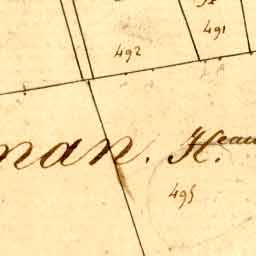 491
492
nan. Heau
495